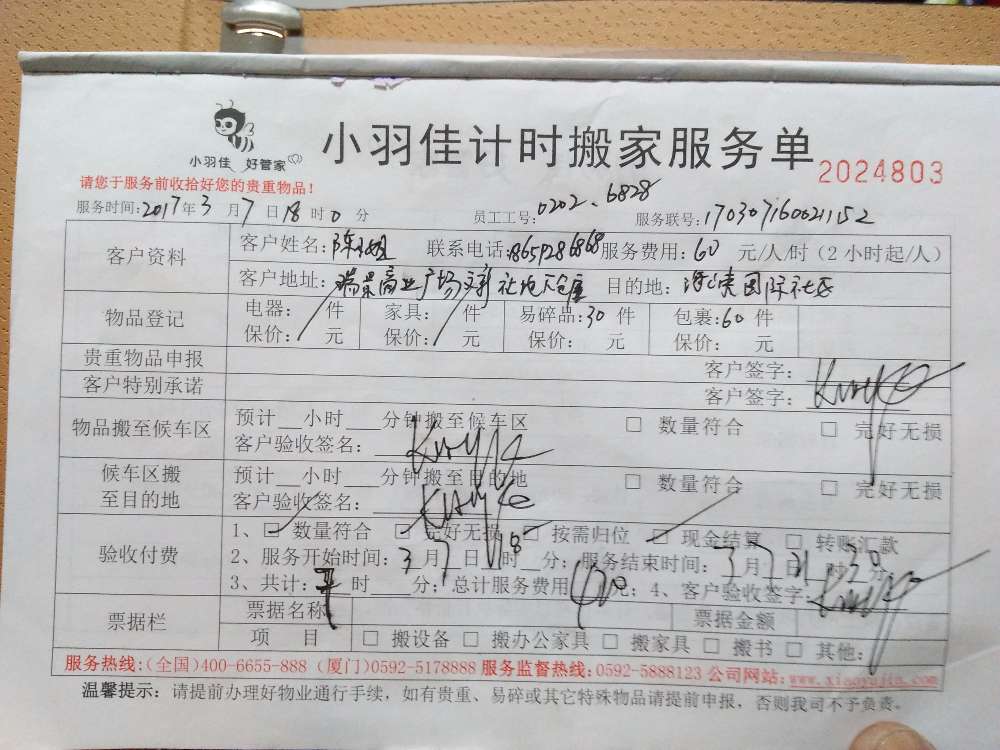 小羽佳 好管家
小羽佳计时搬家服务单
2024803
请您于服务前收拾好您的贵重物品！
服务时间：2017年3月7日18时0分 员工工号：0202、6828 服务联号：170307160021152
客户资料
客户姓名：陈姐 联系电话： 服务费用：60 元/人/时（2小时起/人）
客户地址：瑞景商业广场 目的地：国际社区
物品登记
电器： 件 家具： 件 易碎品：30 件 包裹：60 件
保价： 元 保价： 元 保价： 元 保价： 元
贵重物品申报 客户签字：
客户特别承诺 客户签字：
物品搬至候车区
预计__小时___分钟搬至候车区 □ 数量符合 □ 完好无损
客户验收签名：
候车区搬至目的地
预计__小时___分钟搬至目的地 □ 数量符合 □ 完好无损
客户验收签名：
验收付费
1、☑ 数量符合 ☑ 完好无损 □ 按需归位 ☑ 现金结算 □ 转账汇款
2、服务开始时间：3月7日18时__分；服务结束时间：3月7日21时30分
3、共计： 时__分；总计服务费用 元；4、客户验收签字：
票据栏
票据名称 票据金额
项 目 □ 搬设备 □ 搬办公家具 □ 搬家具 □ 搬书 □ 其他：
服务热线：（全国）400-6655-888（厦门）0592-5178888 服务监督热线：0592-5888123 公司网站：www.xiaoyujia.com
温馨提示：请提前办理好物业通行手续，如有贵重、易碎或其它特殊物品请提前申报，否则我司不予负责。